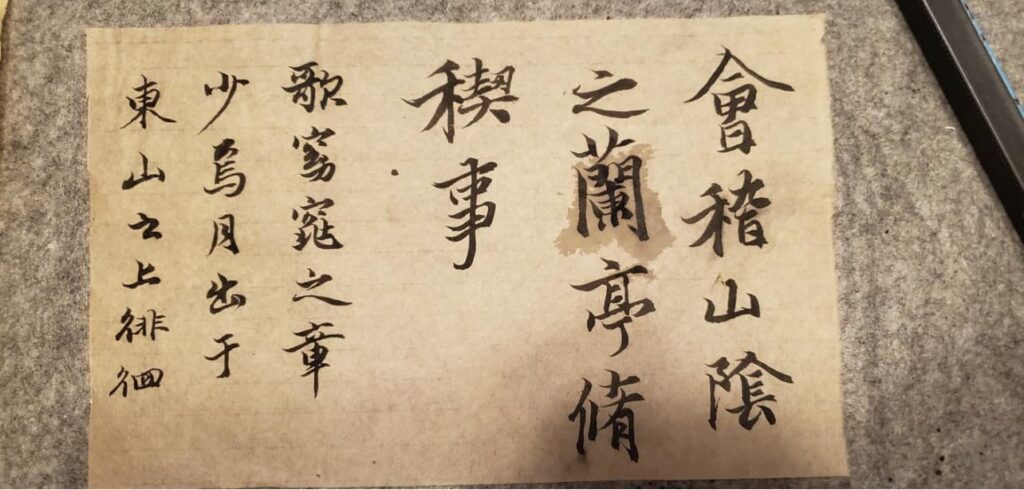 會稽山陰
之蘭亭脩
稧事
歌窈窕之章
少焉月出于
東山之上徘徊